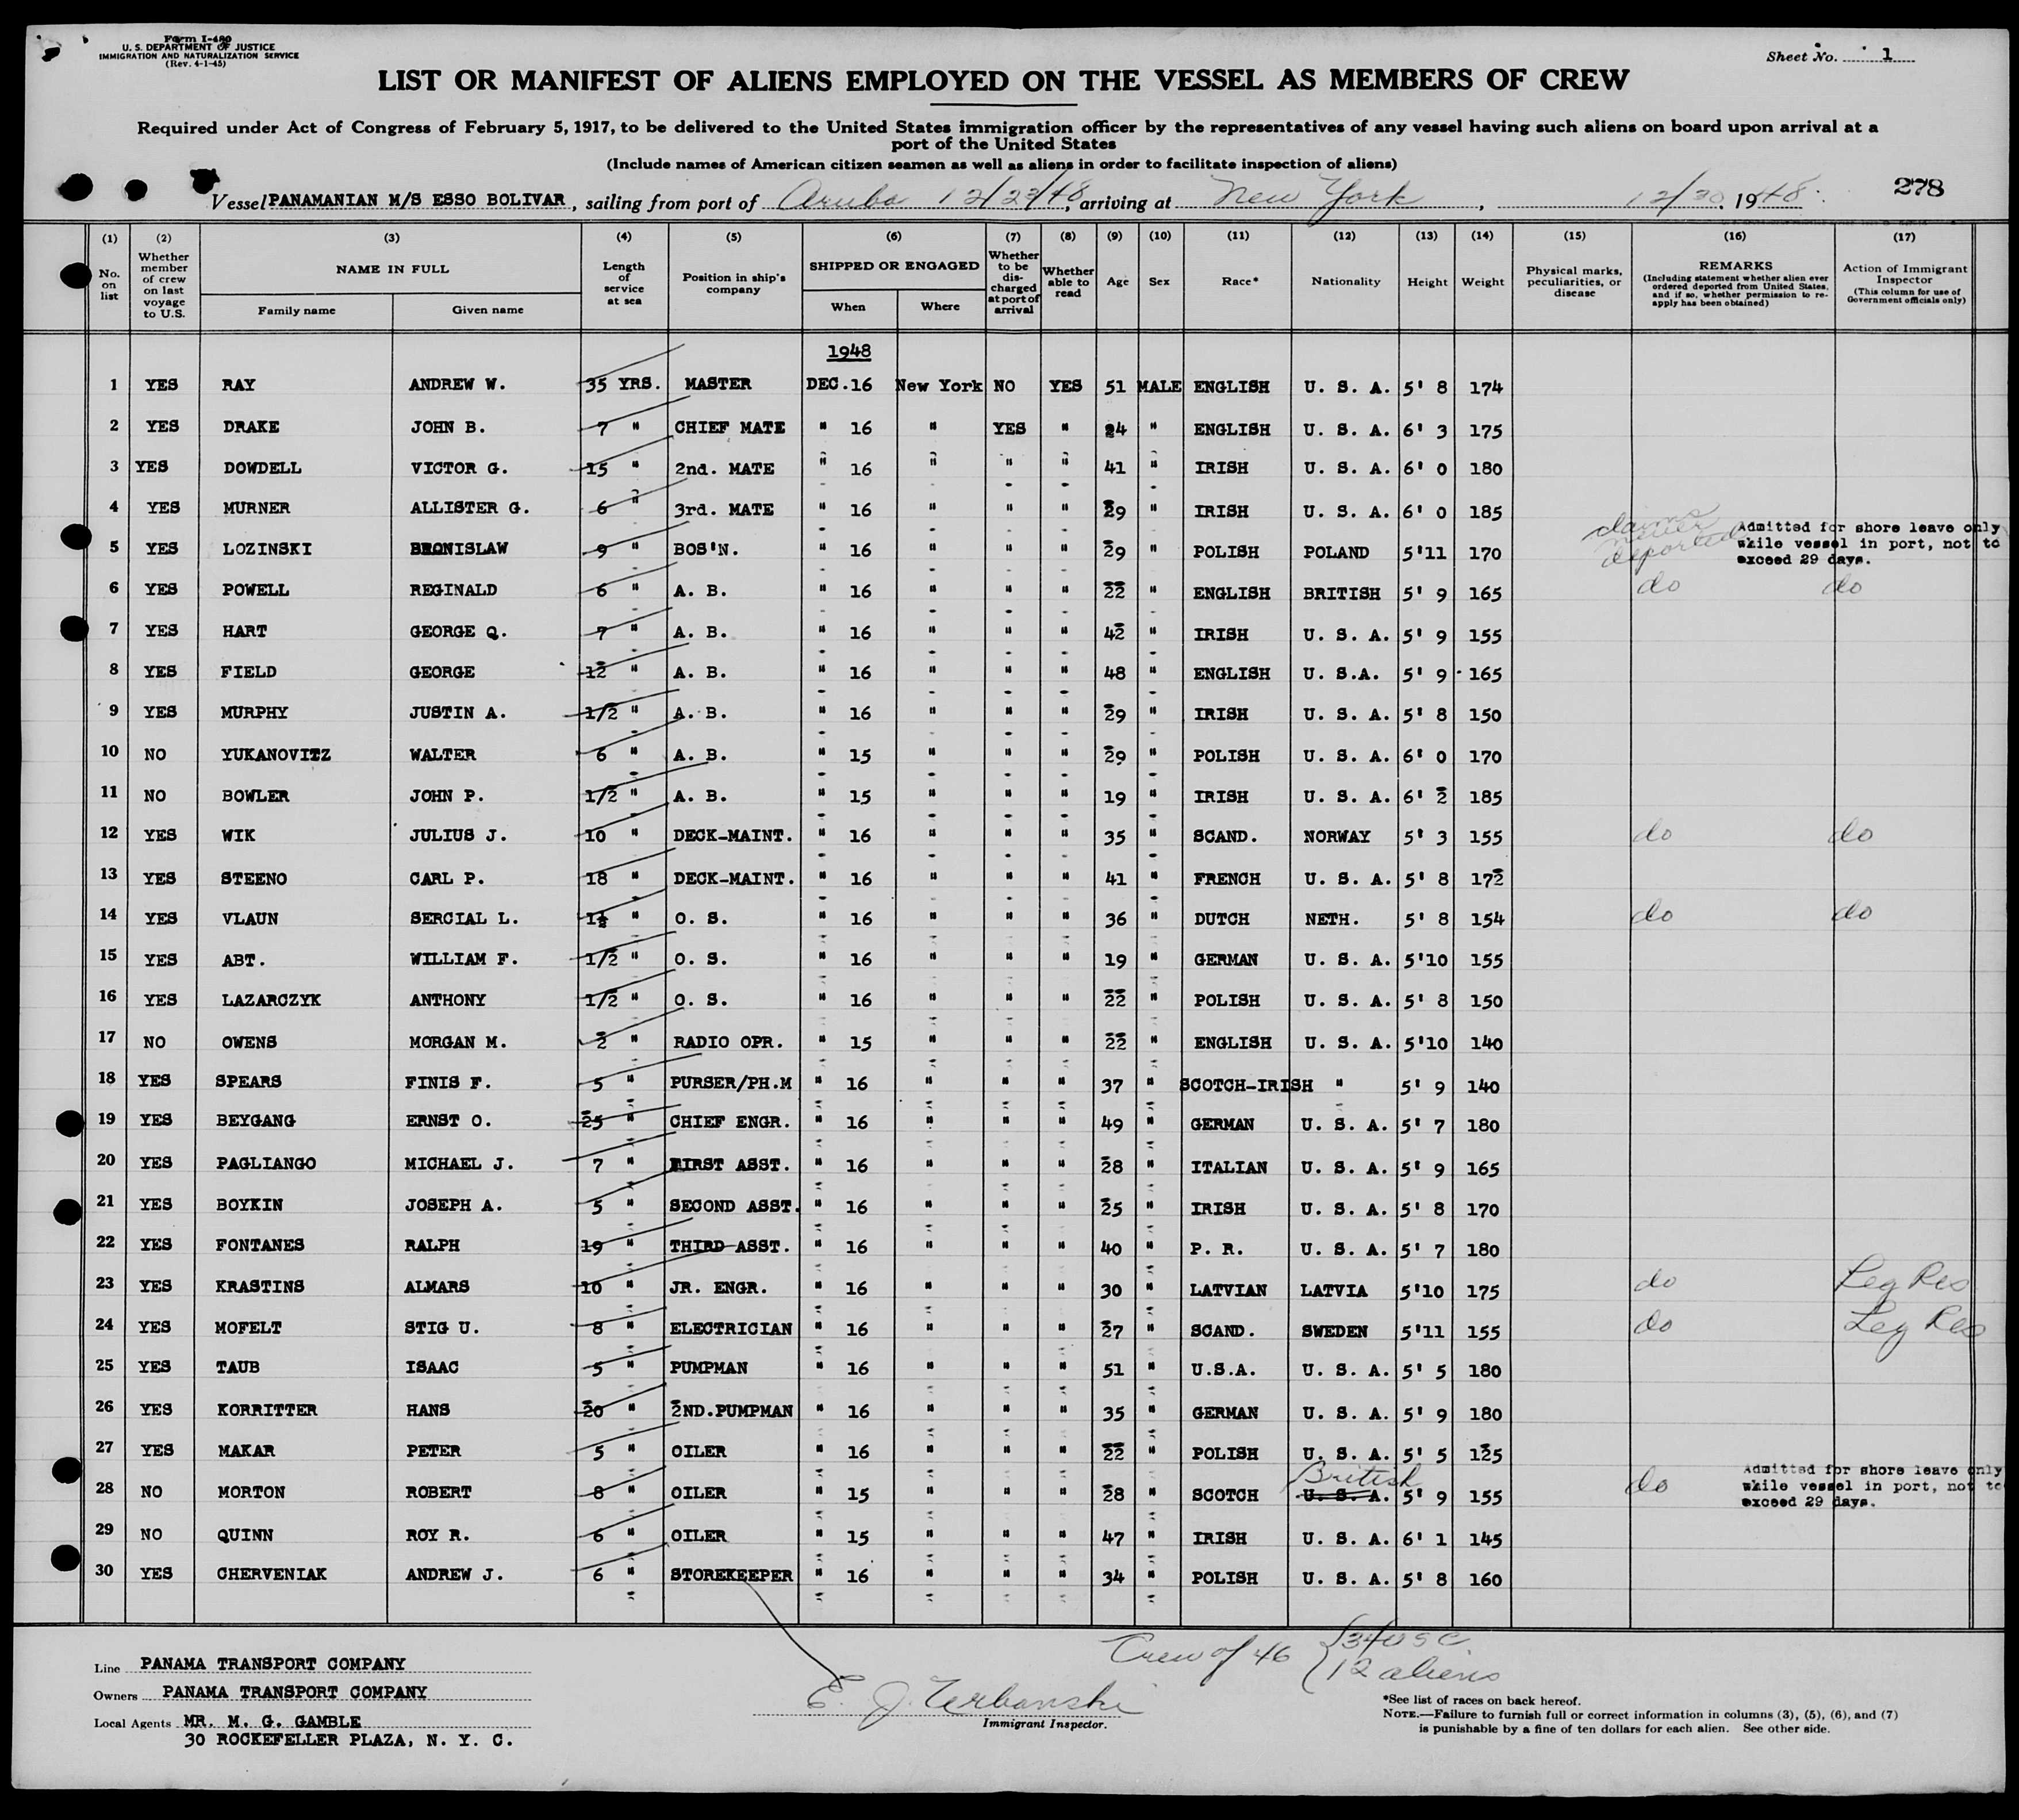 Form I-480
U. S. DEPARTMENT OF JUSTICE
IMMIGRATION AND NATURALIZATION SERVICE
(Rev. 4-1-45)
Sheet No. 1
LIST OR MANIFEST OF ALIENS EMPLOYED ON THE VESSEL AS MEMBERS OF CREW
Required under Act of Congress of February 5, 1917, to be delivered to the United States immigration officer by the representatives of any vessel having such aliens on board upon arrival at a
port of the United States
(Include names of American citizen seamen as well as aliens in order to facilitate inspection of aliens)
Vessel PANAMANIAN M/S ESSO BOLIVAR, sailing from port of Aruba 12/23/48, arriving at New York, 12/30, 1948.
278
(1) (2) (3) (4) (5) (6) (7) (8) (9) (10) (11) (12) (13) (14) (15) (16) (17)
No. on list
Whether member of crew on last voyage to U.S.
NAME IN FULL
Family name Given name
Length of service at sea
Position in ship's company
SHIPPED OR ENGAGED
When Where
Whether to be discharged at port of arrival
Whether able to read
Age Sex Race* Nationality Height Weight
Physical marks, peculiarities, or disease
REMARKS
(Including statement whether alien ever ordered deported from United States, and if so, whether permission to re-apply has been obtained)
Action of Immigrant Inspector
(This column for use of Government officials only)
1948
1 YES RAY ANDREW W. 35 YRS. MASTER DEC.16 New York NO YES 51 MALE ENGLISH U. S. A. 5' 8 174
2 YES DRAKE JOHN B. 7 " CHIEF MATE " 16 " YES " 24 " ENGLISH U. S. A. 6' 3 175
3 YES DOWDELL VICTOR G. 15 " 2nd. MATE " 16 " " " 41 " IRISH U. S. A. 6' 0 180
4 YES MURNER ALLISTER G. 6 " 3rd. MATE " 16 " " " 29 " IRISH U. S. A. 6' 0 185
5 YES LOZINSKI BRONISLAW 9 " BOS'N. " 16 " " " 29 " POLISH POLAND 5'11 170 claims never deported Admitted for shore leave only while vessel in port, not to exceed 29 days.
6 YES POWELL REGINALD 6 " A. B. " 16 " " " 22 " ENGLISH BRITISH 5' 9 165 do do
7 YES HART GEORGE Q. 7 " A. B. " 16 " " " 42 " IRISH U. S. A. 5' 9 155
8 YES FIELD GEORGE 12 " A. B. " 16 " " " 48 " ENGLISH U. S.A. 5' 9 165
9 YES MURPHY JUSTIN A. 1/2 " A. B. " 16 " " " 29 " IRISH U. S. A. 5' 8 150
10 NO YUKANOVITZ WALTER 6 " A. B. " 15 " " " 29 " POLISH U. S. A. 6' 0 170
11 NO BOWLER JOHN P. 1/2 " A. B. " 15 " " " 19 " IRISH U. S. A. 6' 2 185
12 YES WIK JULIUS J. 10 " DECK-MAINT. " 16 " " " 35 " SCAND. NORWAY 5' 3 155 do do
13 YES STEENO CARL P. 18 " DECK-MAINT. " 16 " " " 41 " FRENCH U. S. A. 5' 8 172
14 YES VLAUN SERCIAL L. 1½ " O. S. " 16 " " " 36 " DUTCH NETH. 5' 8 154 do do
15 YES ABT. WILLIAM F. 1/2 " O. S. " 16 " " " 19 " GERMAN U. S. A. 5'10 155
16 YES LAZARCZYK ANTHONY 1/2 " O. S. " 16 " " " 22 " POLISH U. S. A. 5' 8 150
17 NO OWENS MORGAN M. 2 " RADIO OPR. " 15 " " " 22 " ENGLISH U. S. A. 5'10 140
18 YES SPEARS FINIS F. 5 " PURSER/PH.M " 16 " " " 37 " SCOTCH-IRISH " 5' 9 140
19 YES BEYGANG ERNST O. 25 " CHIEF ENGR. " 16 " " " 49 " GERMAN U. S. A. 5' 7 180
20 YES PAGLIANGO MICHAEL J. 7 " FIRST ASST. " 16 " " " 28 " ITALIAN U. S. A. 5' 9 165
21 YES BOYKIN JOSEPH A. 5 " SECOND ASST. " 16 " " " 25 " IRISH U. S. A. 5' 8 170
22 YES FONTANES RALPH 19 " THIRD ASST. " 16 " " " 40 " P. R. U. S. A. 5' 7 180
23 YES KRASTINS ALMARS 10 " JR. ENGR. " 16 " " " 30 " LATVIAN LATVIA 5'10 175 do Leg Res
24 YES MOFELT STIG U. 8 " ELECTRICIAN " 16 " " " 27 " SCAND. SWEDEN 5'11 155 do Leg Res
25 YES TAUB ISAAC 5 " PUMPMAN " 16 " " " 51 " U.S.A. U. S. A. 5' 5 180
26 YES KORRITTER HANS 20 " 2ND.PUMPMAN " 16 " " " 35 " GERMAN U. S. A. 5' 9 180
27 YES MAKAR PETER 5 " OILER " 16 " " " 22 " POLISH U. S. A. 5' 5 125
28 NO MORTON ROBERT 8 " OILER " 15 " " " 28 " SCOTCH U. S. A. British 5' 9 155 do Admitted for shore leave only while vessel in port, not to exceed 29 days.
29 NO QUINN ROY R. 6 " OILER " 15 " " " 47 " IRISH U. S. A. 6' 1 145
30 YES CHERVENIAK ANDREW J. 6 " STOREKEEPER " 16 " " " 34 " POLISH U. S. A. 5' 8 160
Crew of 46 { 34 USC
12 aliens
Line PANAMA TRANSPORT COMPANY
Owners PANAMA TRANSPORT COMPANY
Local Agents MR. M. G. GAMBLE
30 ROCKEFELLER PLAZA, N. Y. C.
E. J. Urbanski
Immigrant Inspector.
*See list of races on back hereof.
NOTE.—Failure to furnish full or correct information in columns (3), (5), (6), and (7)
is punishable by a fine of ten dollars for each alien. See other side.